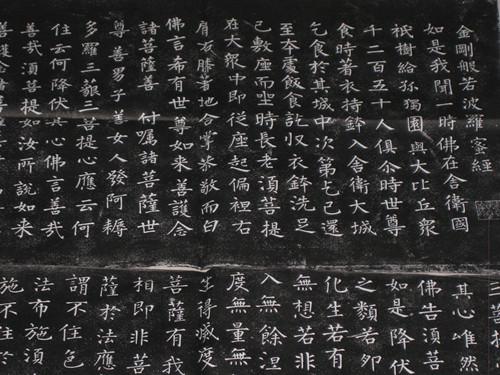 金剛般若波羅蜜經
如是我聞一時佛在舍衛國
祇樹給孤獨園與大比丘衆
千二百五十人俱尒時世尊
食時著衣持鉢入舍衛大城
乞食於其城中次第乞已還
至本處飯食訖收衣鉢洗足
已敷座而坐時長老須菩提
在大衆中即從座起偏袒右
肩右膝著地合掌恭敬而白
佛言希有世尊如來善護念
諸菩薩善付囑諸菩薩世
尊善男子善女人發阿耨
多羅三藐三菩提心應云何
住云何降伏其心佛言善哉
善哉須菩提如汝所說如來
善護念諸
三菩提
其心唯然
佛告須菩
如是降伏
之類若卵
化生若有
無想若非
入無餘涅
度無量無
生得滅度
菩薩有我
相即非菩
薩於法應
謂不住色
法布施須
施不住